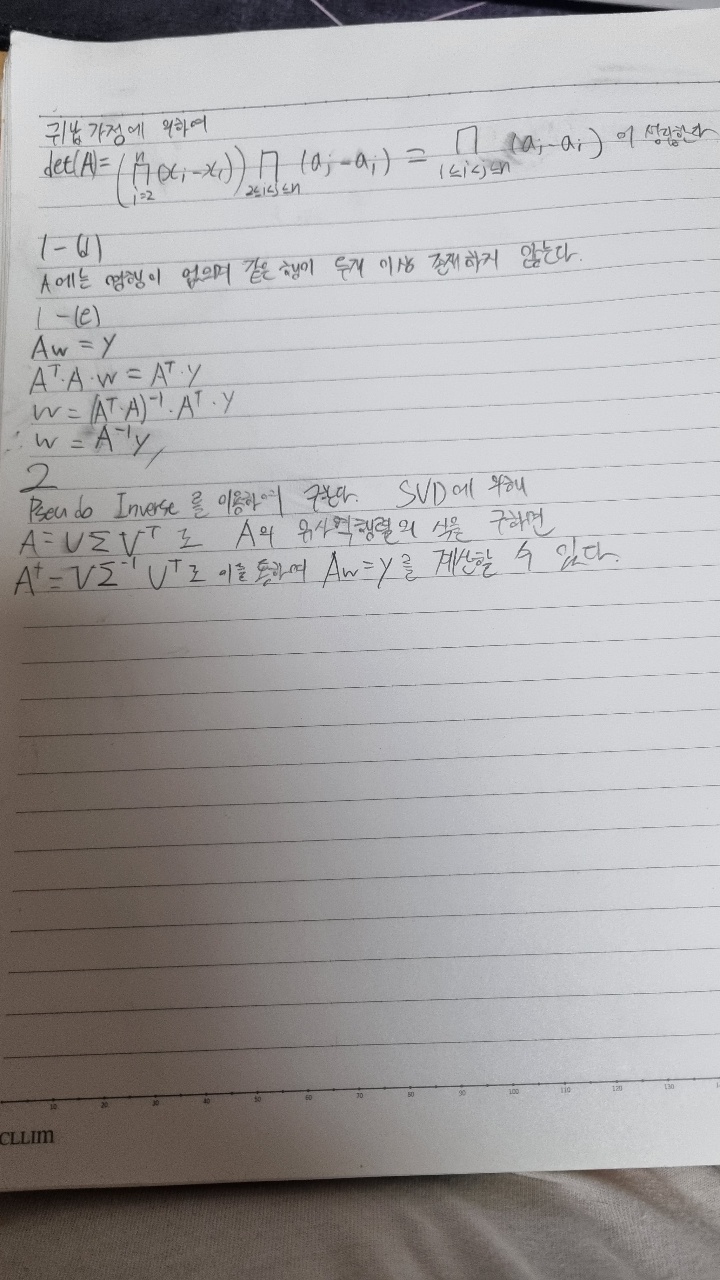 귀납 가정에 의하여
det(A)=(∏_{i=2}^{n}(x_i-x_1))∏_{2≤i<j≤n}(a_j-a_i)=∏_{1≤i<j≤n}(a_j-a_i) 이 성립한다
1-(d)
A에는 영행이 없으며 같은 행이 두개 이상 존재하지 않는다.
1-(e)
Aw=y
A^T·A·w=A^T·y
w=(A^T·A)^{-1}·A^T·y
∴ w=A^{-1}y
2
Pseudo Inverse를 이용하여 구한다. SVD에 의해
A=UΣV^T로 A의 유사역행렬의 식을 구하면
A^+=VΣ^{-1}U^T로 이를 통하여 Aw=y를 계산할 수 있다.
10 20 30 40 50 60 70 80 90 100 110 120 130
CLLIM